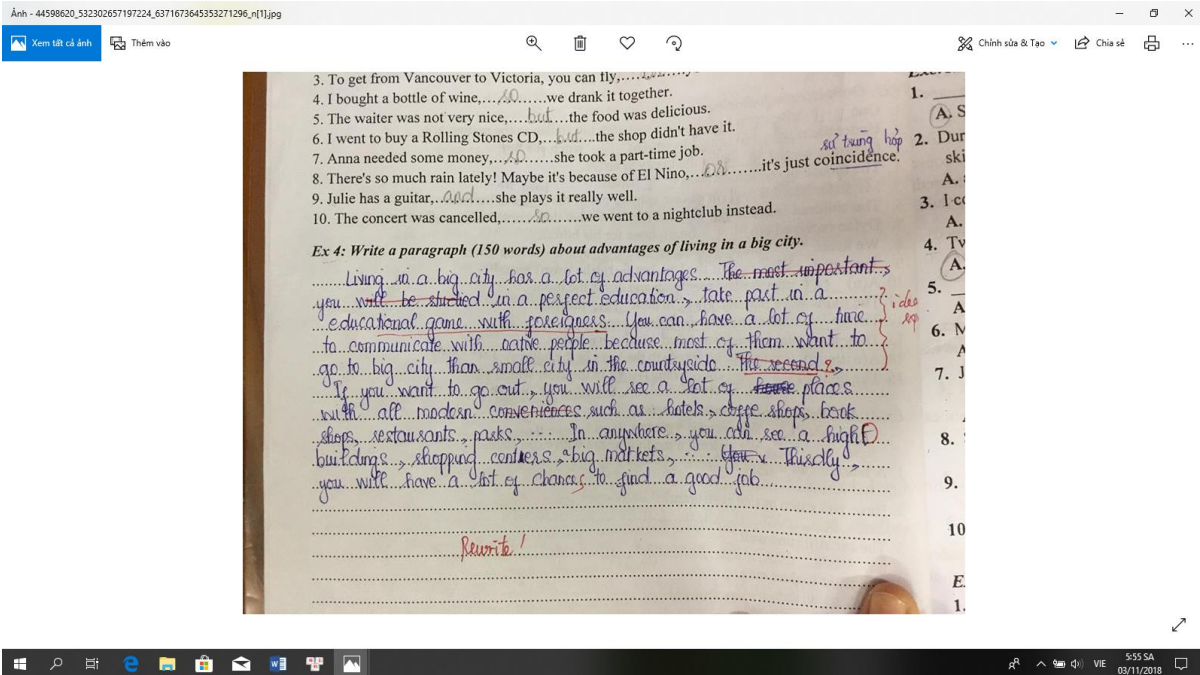 Ảnh - 44598620_532302657197224_6371673645353271296_n[1].jpg
Xem tất cả ảnh
Thêm vào
Chỉnh sửa & Tạo
Chia sẻ
3. To get from Vancouver to Victoria, you can fly,
4. I bought a bottle of wine,...so......we drank it together.
5. The waiter was not very nice,...but....the food was delicious.
6. I went to buy a Rolling Stones CD,...but....the shop didn't have it.
sự trùng hợp
7. Anna needed some money,...so.......she took a part-time job.
8. There's so much rain lately! Maybe it's because of El Nino,...or.......it's just coincidence.
9. Julie has a guitar,...and.....she plays it really well.
10. The concert was cancelled,......so.......we went to a nightclub instead.
Ex 4: Write a paragraph (150 words) about advantages of living in a big city.
Living in a big city has a lot of advantages. The most important,
you will be studied in a perfect education, take part in a
educational game with foreigners. You can have a lot of time
to communicate with native people because most of them want to
go to big city than small city in the countryside. The second ?,
If you want to go out, you will see a lot of places
with all modern conveniences such as hotels, coffe shops, book
shops, restaurants, parks, ... In anywhere, you can see a hight
buildings, shopping centers, big markets, ... You Thirdly,
you will have a lot of chances to find a good job
Rewrite!
1.
A. S
2. Dur
ski
A.
3. I co
A.
4. Tv
A.
5.
A
6. M
A
7. J
8.
9.
10
E
1.
VIE
5:55 SA
03/11/2018